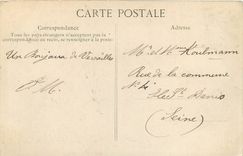 CARTE POSTALE
Correspondance
Tous les pays étrangers n'acceptent pas la
correspondance au recto, se renseigner à la poste
Adresse
Un Bonjour de Versailles
Mr et Mme
Rue de la commune
No 4
(Seine)